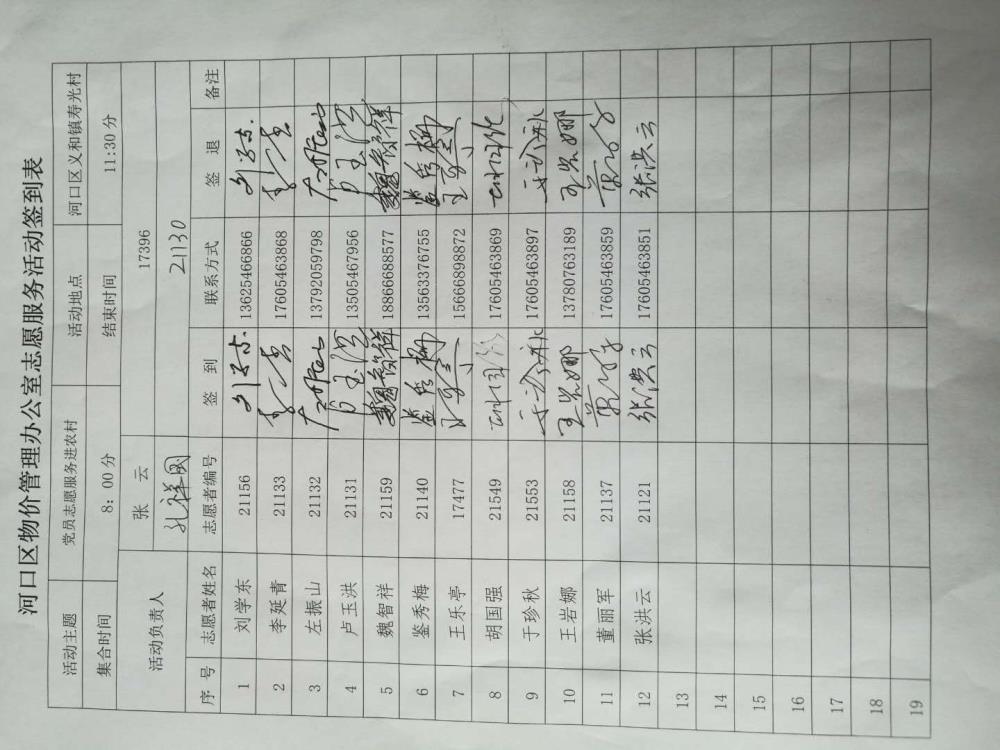 河口区物价管理办公室志愿服务活动签到表
活动主题 党员志愿服务进农村 活动地点 河口区义和镇寿光村
集合时间 8：00分 结束时间 11:30分
活动负责人 张 云 17396
孔祥国 21130
序 号 志愿者姓名 志愿者编号 签 到 联系方式 签 退 备注
1 刘学东 21156 13625466866
2 李延青 21133 17605463868
3 左振山 21132 13792059798
4 卢玉洪 21131 卢玉洪 13505467956 卢玉洪
5 魏智祥 21159 魏智祥 18866688577 魏智祥
6 鉴秀梅 21140 鉴秀梅 13563376755 鉴秀梅
7 王乐亭 17477 15666898872
8 胡国强 21549 17605463869
9 于珍秋 21553 于珍秋 17605463897 于珍秋
10 王岩娜 21158 王岩娜 13780763189 王岩娜
11 董丽军 21137 17605463859
12 张洪云 21121 张洪云 17605463851 张洪云
13
14
15
16
17
18
19